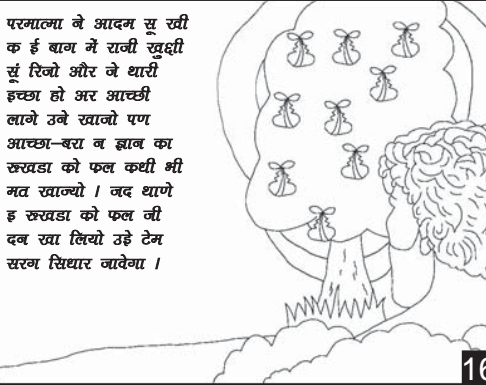 परमात्मा ने आदम सू खी
क ई बाग में राजी खुद्दी
सूं रिजो और जे थारी
इच्छा हो अर आच्छी
लागे उने खाजो पण
आच्छा–बरा न ज्ञान का
रूखडा को फल कधी भी
मत खाज्यो । जद थाणे
इ रूखडा को फल जी
दन खा लियो उइे टेम
सरग सिधार जावेगा ।
16